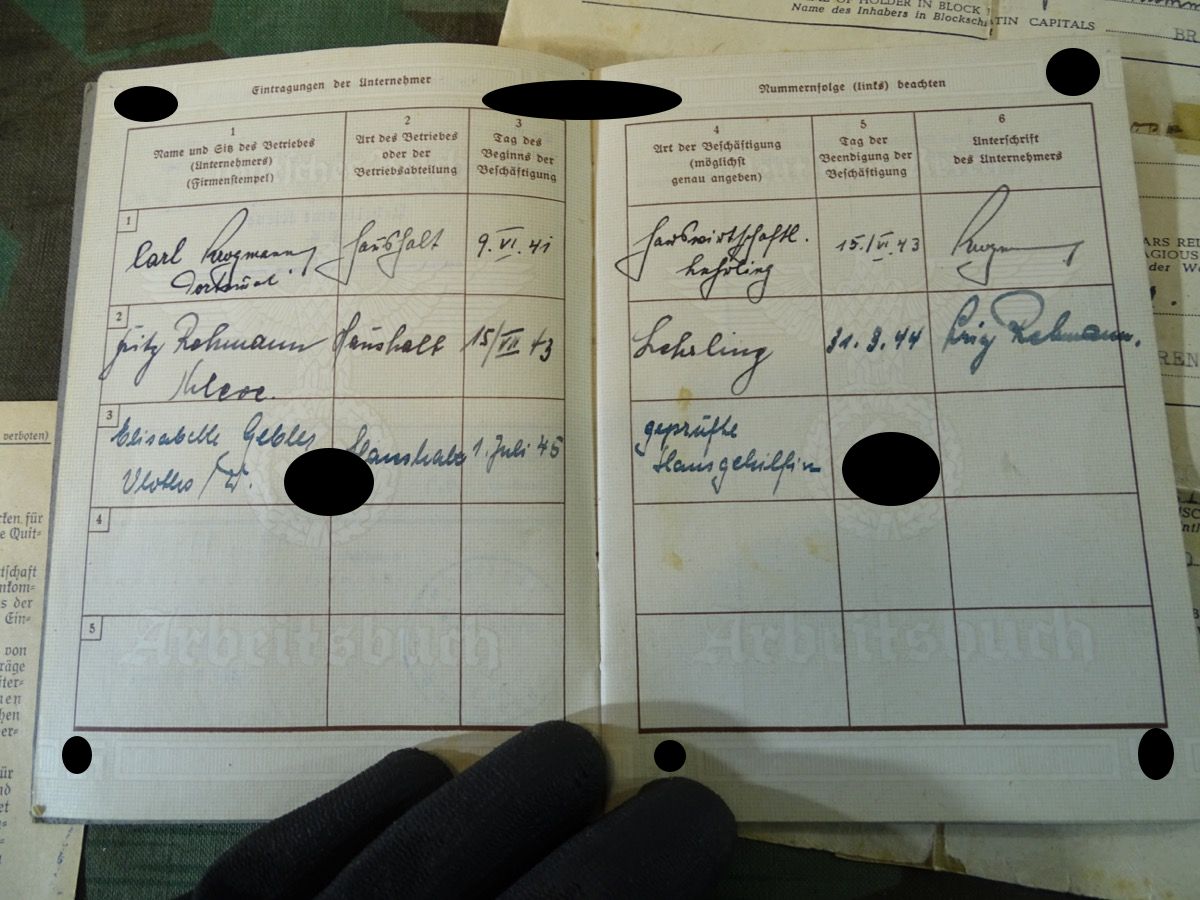 OF HOLDER IN BLOCK
Name des Inhabers in Blocksch
TIN CAPITALS
BR
Eintragungen der Unternehmer
Nummernfolge (links) beachten
1
Name und Sitz des Betriebes
(Unternehmers)
(Firmenstempel)
2
Art des Betriebes
oder der
Betriebsabteilung
3
Tag des
Beginns der
Beschäftigung
4
Art der Beschäftigung
(möglichst
genau angeben)
5
Tag der
Beendigung der
Beschäftigung
6
Unterschrift
des Unternehmers
1
Carl Krogmann
Dortmund
Haushalt
9. VI. 41
hauswirtschaftl.
Lehrling
15./VI. 43
Krogmann
2
Fritz Rehmann
Kleve.
Haushalt
15/VII 43
Lehrling
31. 3. 44
Fritz Rehmann.
3
Elisabeth
Vlotho /W.
Haushalt
1. Juli 45
geprüfte
Hausgehilfin
4
5
Arbeitsbuch
Arbeitsbuch
verboten)
für
e Quit-
tschaft
nkom-
s der
Ein-
von
räge
iter-
nen
hen
er-
ür
nd
et
ARS REL
AGIOUS
der We
REN